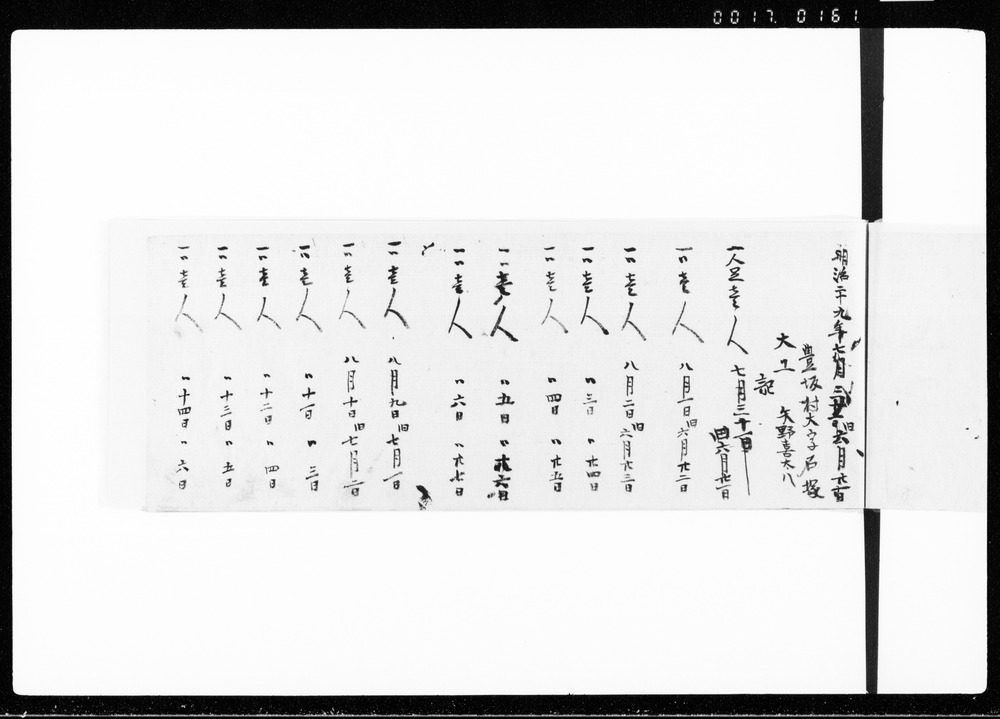 0017 0161
明治二十九年七月 旧六月廿一日
豊坂村大字石塚
大工 矢野喜太八
記
一人足壱人 七月三十一日 旧六月廿一日
一〃壱人 八月一日 旧六月廿二日
一〃壱人 八月二日 旧六月廿三日
一〃壱人 〃三日 〃廿四日
一〃壱人 〃四日 〃廿五日
一〃壱人 〃五日 〃廿六日
一〃壱人 〃六日 〃廿七日
一〃壱人 八月九日 旧七月一日
一〃壱人 八月十日 旧七月二日
一〃壱人 〃十一日 〃三日
一〃壱人 〃十二日 〃四日
一〃壱人 〃十三日 〃五日
一〃壱人 〃十四日 〃六日